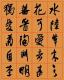 水陸艸木之
花可愛者甚
蕃晉陶淵明
獨愛菊自李